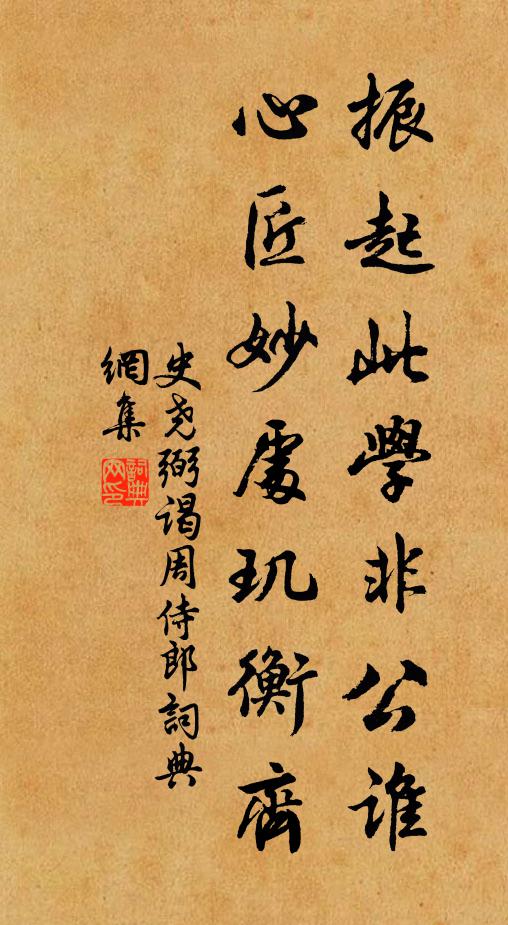 振起此學非公誰
心匠妙處玑衡齊
史尧弼谒周侍郎詞典
網集
詞典
网印